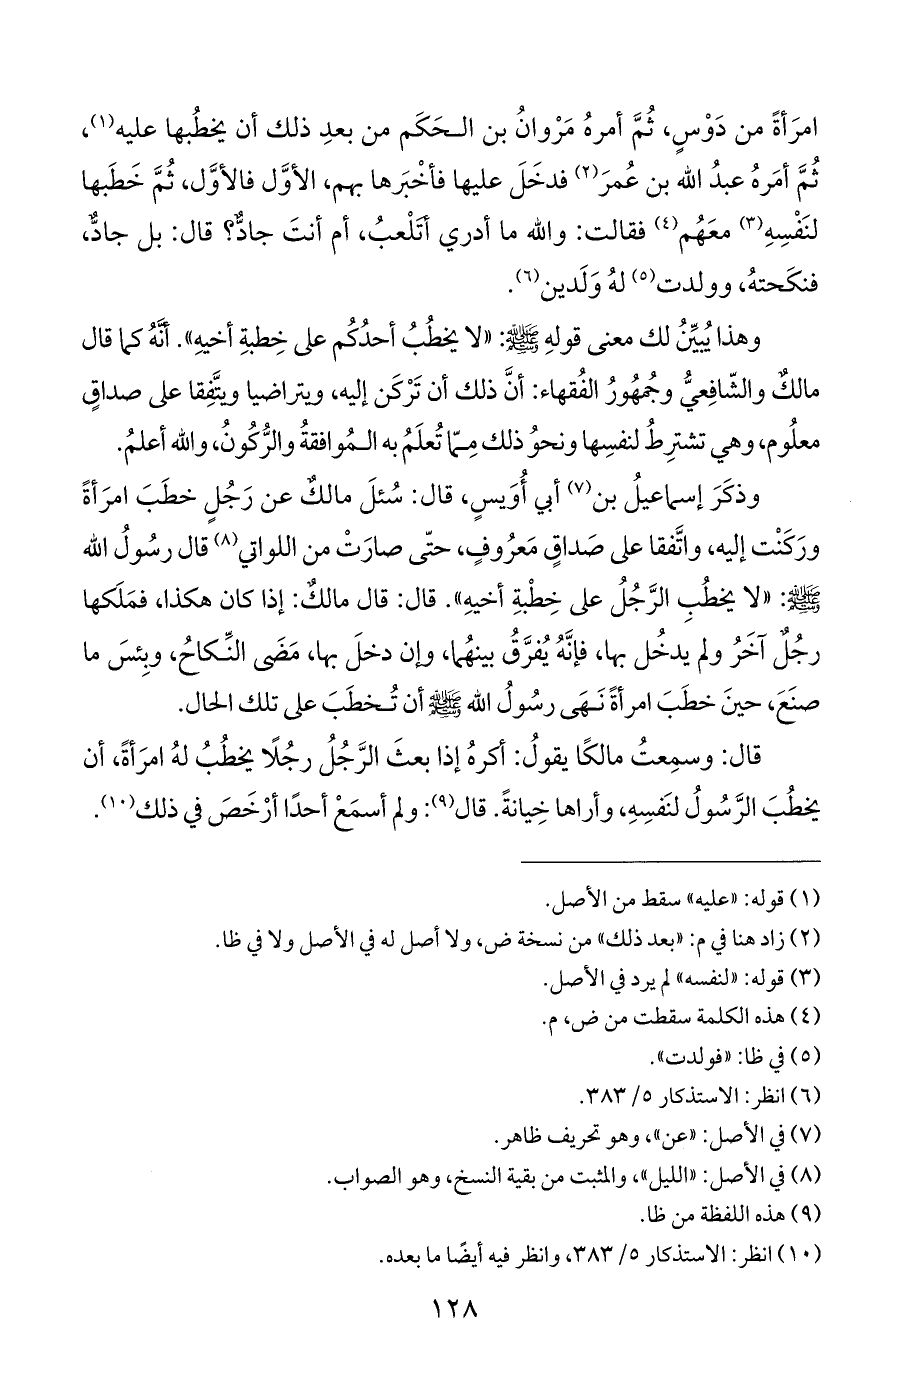 امرَأةً من دَوْسٍ، ثُمَّ أمرهُ مَرْوانُ بن الـحَكَم من بعدِ ذلك أن يخطُبها عليه(١)،
ثُمَّ أمَرهُ عبدُ الله بن عُمرَ(٢) فدخَلَ عليها فأخْبَرها بهم، الأوَّل فالأوَّل، ثُمَّ خَطَبها
لنَفْسِهِ(٣) معَهُم(٤) فقالت: والله ما أدري أتَلْعبُ، أم أنتَ جادٌّ؟ قال: بل جادٌّ،
فنكَحتهُ، وولدت(٥) لهُ وَلَدين(٦).
وهذا يُبيِّنُ لك معنى قولهِ ﷺ: «لا يخطُبُ أحدُكُم على خِطبةِ أخيهِ». أنَّهُ كما قال
مالكٌ والشّافِعيُّ وجُمهُورُ الفُقهاء: أنَّ ذلك أن تَرْكَن إليه، ويتراضيا ويتَّفِقا على صداقٍ
معلُوم، وهي تشترِطُ لنفسِها ونحوُ ذلك مِمّا تُعلَمُ به الـمُوافقةُ والرُّكُونُ، والله أعلمُ.
وذكَرَ إسماعيلُ بن(٧) أبي أُوَيسٍ، قال: سُئلَ مالكٌ عن رَجُلٍ خطَبَ امرأةً
ورَكَنْت إليه، واتَّفقا على صَداقٍ مَعرُوفٍ، حتّى صارَتْ من اللواتي(٨) قال رسُولُ الله
ﷺ: «لا يخطُبِ الرَّجُلُ على خِطْبةِ أخيهِ». قال: قال مالكٌ: إذا كان هكذا، فمَلَكها
رجُلٌ آخَرُ ولم يدخُل بها، فإنَّهُ يُفرَّقُ بينهُما، وإن دخلَ بها، مَضَى النِّكاحُ، وبِئسَ ما
صنَعَ، حينَ خطَبَ امرأةً نَـهَى رسُولُ الله ﷺ أن تُـخطَبَ على تلك الحال.
قال: وسمِعتُ مالكًا يقولُ: أكرهُ إذا بعثَ الرَّجُلُ رجُلًا يخطُبُ لهُ امرَأةً، أن
يخطُبَ الرَّسُولُ لنَفسِهِ، وأراها خِيانةً. قال(٩): ولم أسمَعْ أحدًا أرْخَصَ في ذلك(١٠).
(١) قوله: «عليه» سقط من الأصل.
(٢) زاد هنا في م: «بعد ذلك» من نسخة ض، ولا أصل له في الأصل ولا في ظا.
(٣) قوله: «لنفسه» لم يرد في الأصل.
(٤) هذه الكلمة سقطت من ض، م.
(٥) في ظا: «فولدت».
(٦) انظر: الاستذكار ٥/ ٣٨٣.
(٧) في الأصل: «عن»، وهو تحريف ظاهر.
(٨) في الأصل: «الليل»، والمثبت من بقية النسخ، وهو الصواب.
(٩) هذه اللفظة من ظا.
(١٠) انظر: الاستذكار ٥/ ٣٨٣، وانظر فيه أيضًا ما بعده.
١٢٨